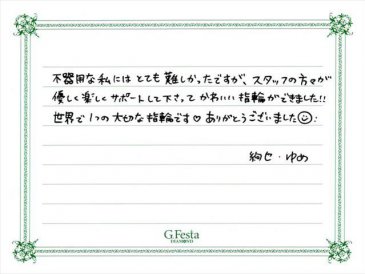 不器用な私にはとても難しかったですが、スタッフの方々が
優しく楽しくサポートして下さってかわいい指輪ができました!!
世界で1つの大切な指輪です♡ ありがとうございました☺.
絢也・ゆめ
G.Festa
DIAMOND